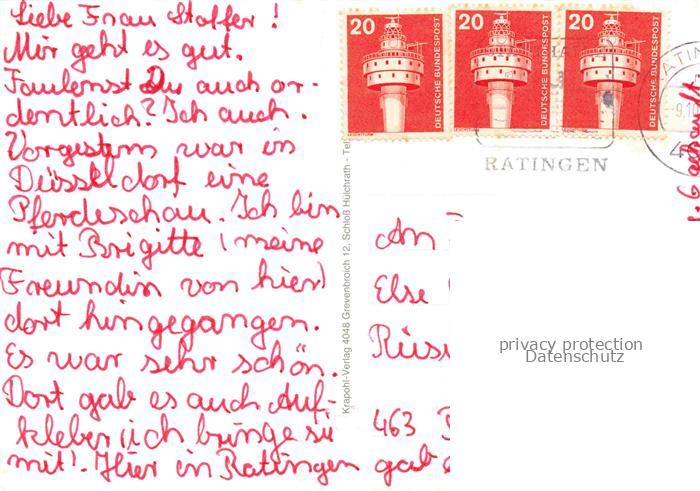 Liebe Frau Stoffer!
Mir geht es gut.
Faulenst Du auch or-
dentlich? Ich auch.
Vorgestern war in
Düsseldorf eine
Pferdeschau. Ich bin
mit Brigitte (meine
Freundin von hier)
dort hingegangen.
Es war sehr schön.
Dort gab es auch Auf-
kleber (ich bringe sie
mit). Hier in Ratingen gab
20
DEUTSCHE BUNDESPOST
20
DEUTSCHE BUNDESPOST
20
DEUTSCHE BUNDESPOST
RATINGEN
RATIN
-9.10
Krapohl-Verlag 4048 Grevenbroich 12, Schloß Hülchrath - Tel
An
Else
463
privacy protection
Datenschutz